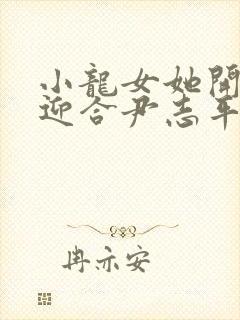 小龍女她開
迎合尹志平
冉亦安